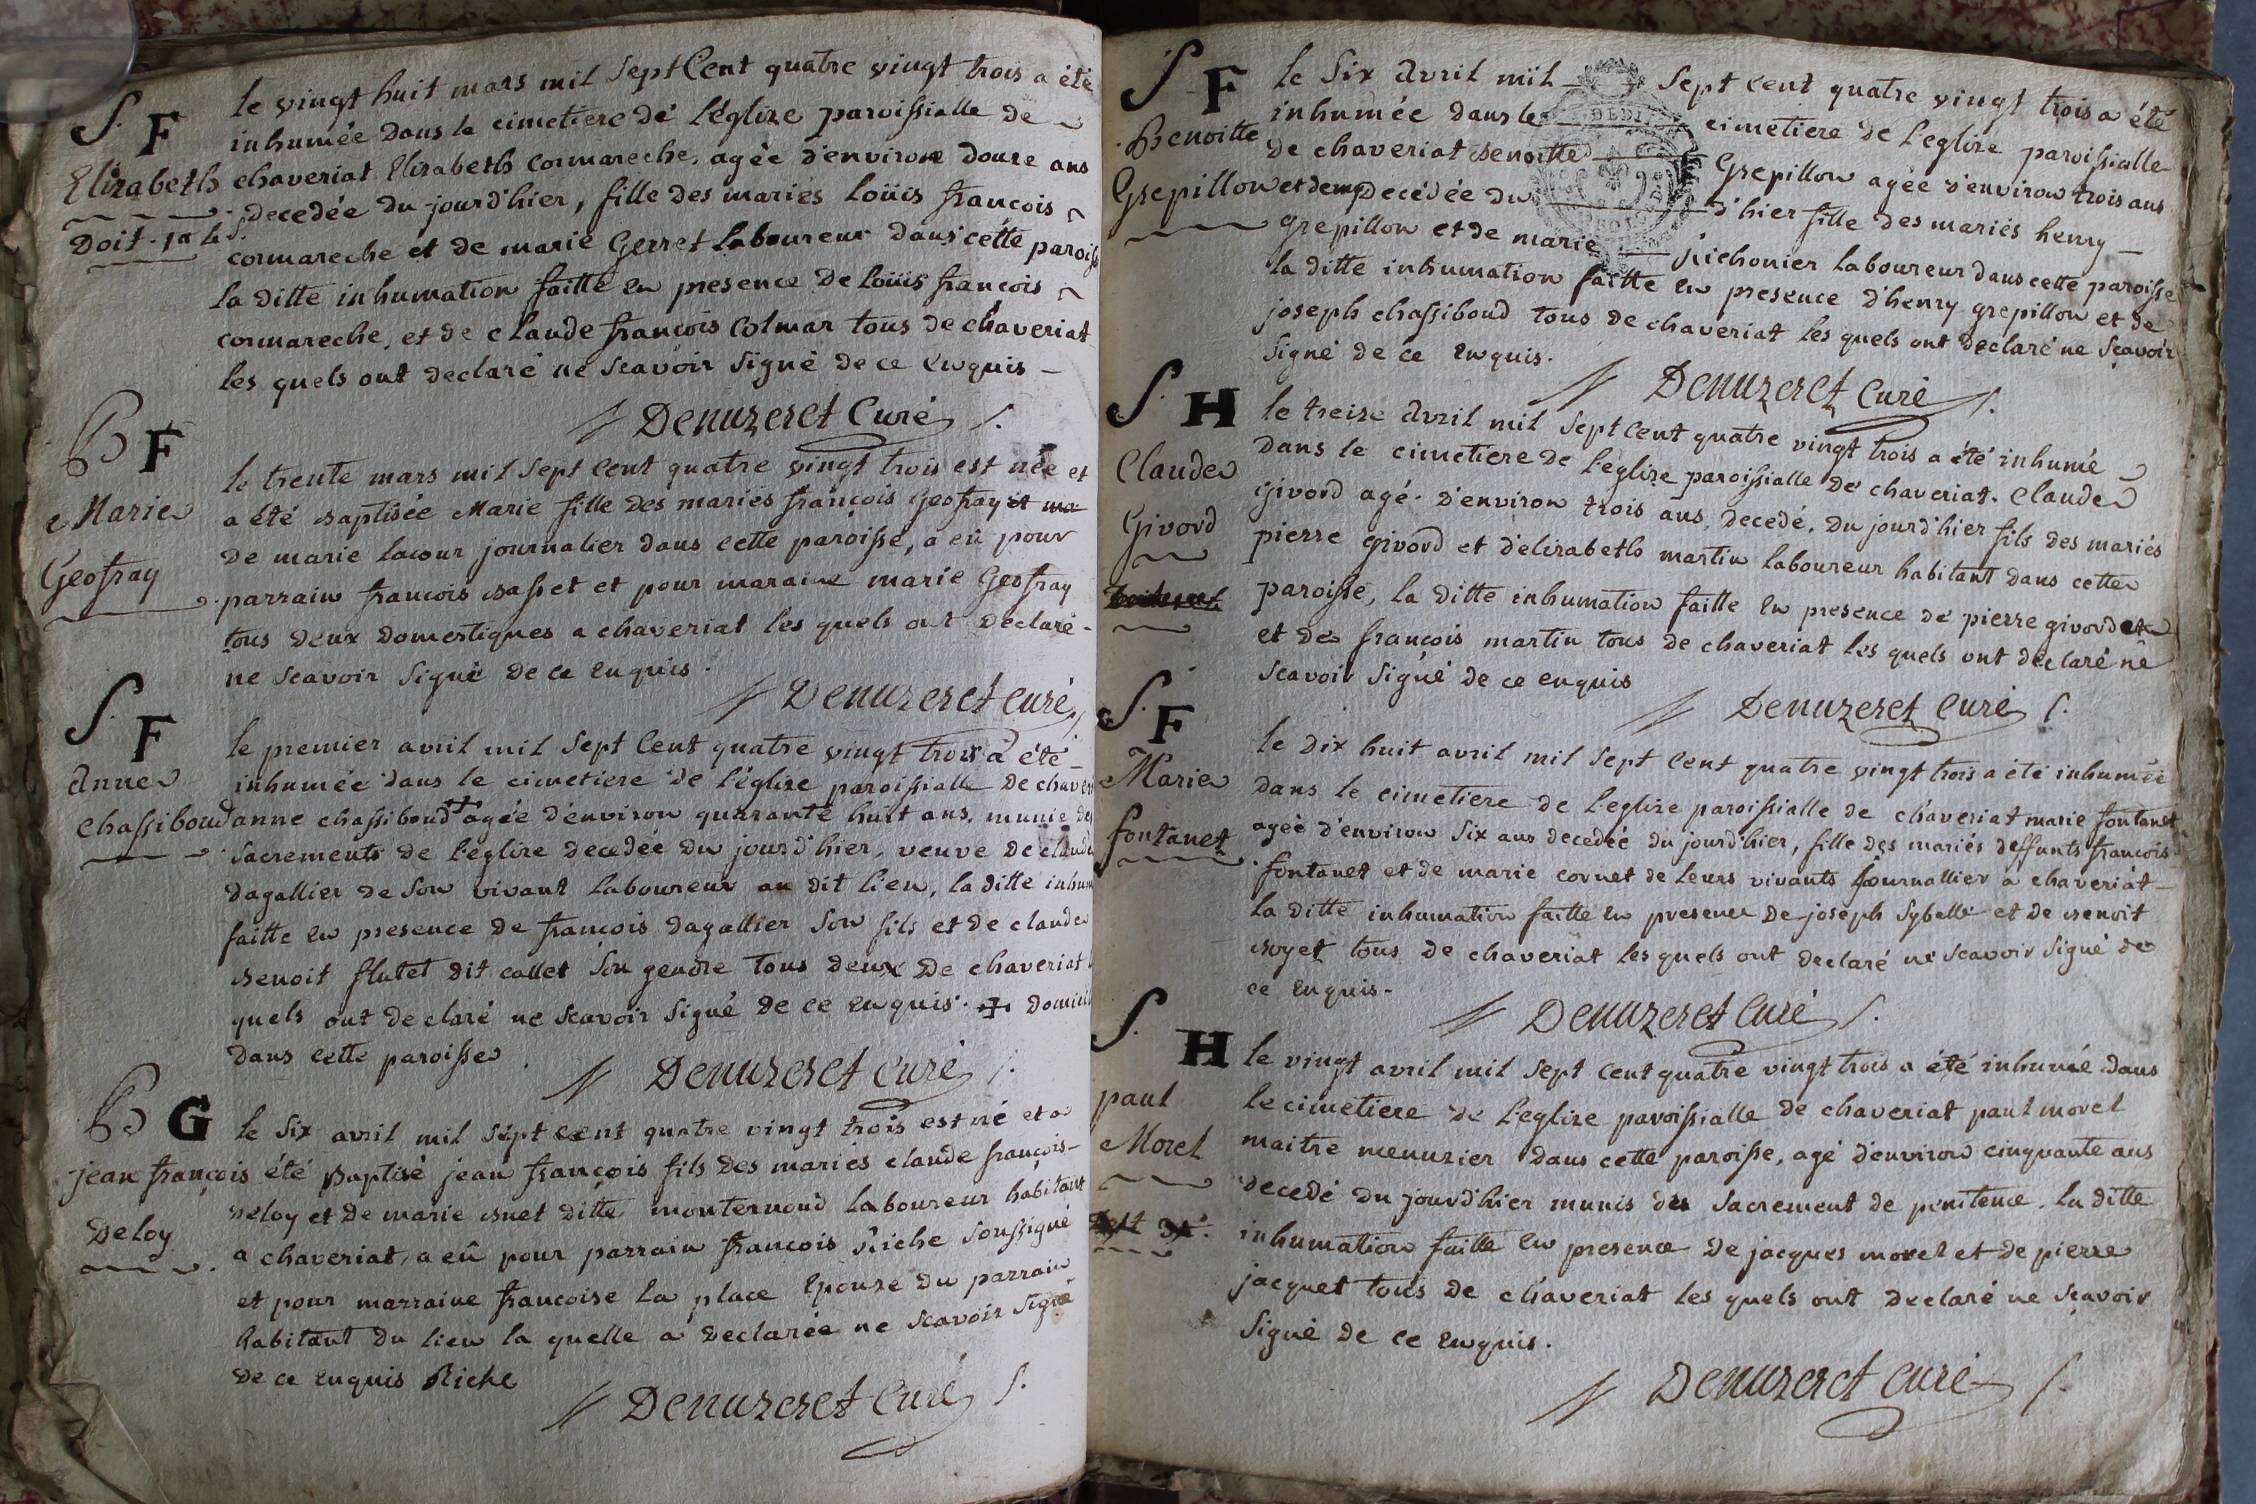 S. F
Elizabeth
le vingt huit mars mil sept cent quatre vingt trois a été
inhumée dans le cimetiere de l'églize paroissialle de
chaveriat Elizabeth cormareche, agée d'environ douze ans
decedée du jourd'hier, fille des mariés Loüis francois
cormareche et de marie Gerret laboureur dans cette paroisse
la ditte inhumation faitte en presence de Loüis francois
cormareche, et de claude francois Colmar tous de chaveriat
les quels ont declaré ne scavoir signé de ce enquis
Denuzeret Curé
B F
Marie
Geofray
le trente mars mil sept cent quatre vingt trois est née et
a été baptisée Marie fille des mariés françois Geofray et ma
de marie lacour journalier dans cette paroisse, a eû pour
parrain francois basset et pour maraine marie Geofray
tous deux domestiques a chaveriat les quels ont declaré
ne scavoir signé de ce enquis.
Denuzeret Curé
S. F
Anne
chassiboud
le premier avril mil sept cent quatre vingt trois a été
inhumée dans le cimetiere de l'églize paroissialle de chaveri
anne chassiboud + agée d'environ quarante huit ans, munie des
sacrements de l'eglize decedée du jourd'hier, veuve de claude
dagallier de son vivant laboureur au dit lieu, la ditte inhum
faitte en presence de françois dagallier son fils et de claude
benoit flutet dit callet son gendre tous deux de chaveriat
quels ont declaré ne scavoir signé de ce enquis. + domicili
dans cette paroisse
Denuzeret curé
B G
jean françois
Deloy
le six avril mil sept cent quatre vingt trois est né et a
été baptisé jean françois fils des mariés claude françois
deloy et de marie buet ditte monternoud laboureur habitant
a chaveriat, a eû pour parrain francois Riche soussigné
et pour marraine francoise la place epouze du parrain
habitant du lieu la quelle a declarée ne scavoir signé
de ce enquis Riche
Denuzeret Curé
S F
Benoitte
Grepillon
le six Avril mil sept cent quatre vingt trois a été
inhumée dans le cimetiere de l'eglize paroissialle
de chaveriat benoitte Grepillon agée d'environ trois ans
et demy decédée du d'hier fille des mariés henry
grepillon et de marie Richonier laboureur dans cette paroisse
la ditte inhumation faitte en presence d'henry grepillon et de
joseph chassiboud tous de chaveriat les quels ont declaré ne scavoir
signé de ce enquis.
Denuzeret Curé
S. H
Claude
Givord
le treize Avril mil sept cent quatre vingt trois a été inhumé
dans le cimetiere de l'eglize paroissialle de chaveriat. Claude
Givord agé d'environ trois ans, decedé, du jourd'hier fils des mariés
pierre givord et d'elizabeth martin laboureur habitant dans cette
paroisse, la ditte inhumation faitte en presence de pierre givord et
et de françois martin tous de chaveriat les quels ont declaré ne
scavoir signé de ce enquis
Denuzeret Curé
S. F
Marie
fontanet
le dix huit avril mil sept cent quatre vingt trois a été inhumée
dans le cimetiere de l'eglize paroissialle de chaveriat marie fontanet
agée d'environ six ans decedée du jourd'hier, fille des mariés deffunts francois
fontanet et de marie cornet de leurs vivants journallier a chaveriat
la ditte inhumation faitte en presence de joseph Sybelle et de benoit
boyet tous de chaveriat les quels ont declaré ne scavoir signé de
ce enquis.
Denuzeret Curé
S. H
paul
Morel
le vingt avril mil sept cent quatre vingt trois a été inhumé dans
le cimetiere de l'eglize paroissialle de chaveriat paul morel
maitre menuzier dans cette paroisse, agé d'environ cinquante ans
decedé du jourd'hier munis des sacrement de penitence, la ditte
inhumation faitte en presence de jacques morel et de pierre
jacquet tous de chaveriat les quels ont declaré ne scavoir
signé de ce enquis.
Denuzeret curé